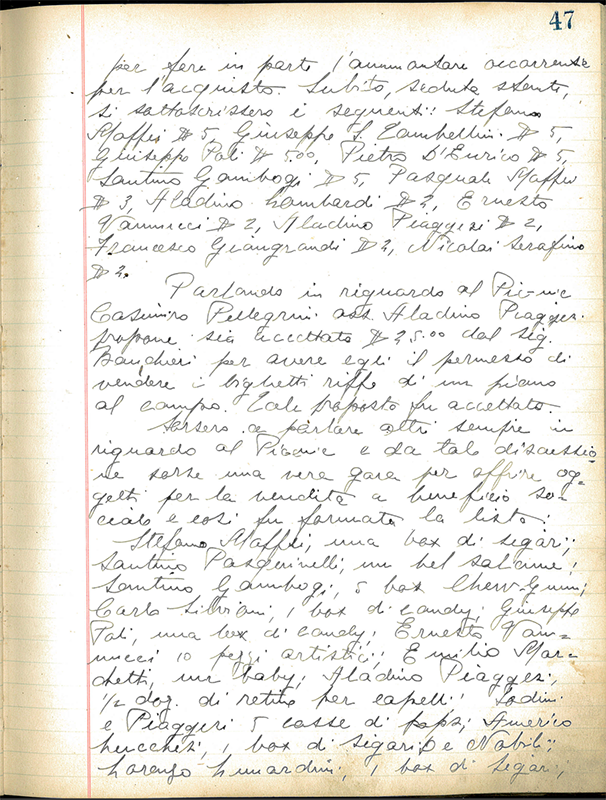 47
per fare in parte l'ammontare occorrente
per l'acquisto. Subito, seduta stante,
si sottoscrissero i seguenti: Stefano
Maffei $ 5, Giuseppe S. Zambellini $ 5,
Giuseppe Poli $ 5.00, Pietro D'Enrico $ 5,
Santino Gambogi $ 5, Pasquale Maffei
$ 3, Aladino Lombardi $ 2, Ernesto
Vannucci $ 2, Aladino Piaggesi $ 2,
Francesco Giangrandi $ 2, Nicolai Serafino
$ 2.
Parlando in riguardo al Pic-nic
Casimiro Pellegrini Aladino Piaggesi
propone sia accettato $ 25.00 dal sig.
Banchieri per avere egli il permesso di
vendere i biglietti riffe di un piano
al campo. Tale proposto fu accettato.
Sorsero a parlare altri sempre in
riguardo al Picnic e da tale discussio
ne sorse una vera gara per offrire og-
getti per la vendita a beneficio so-
ciale e così fu formata la lista:
Stefano Maffei, una box di segari;
Santino Pasquinelli, un bel salame;
Santino Gambogi, 5 box Chew-Gum;
Carlo Silvioni, 1 box di candy; Giuseppe
Poli, una box di candy; Ernesto Van-
nucci 10 pezzi artistici; Emilio Mar-
chetti, un baby; Aladino Piaggesi,
1/2 doz. di retine per capelli;
e Piaggesi 5 casse di pops; Americo
Lucchesi, 1 box di segari; De Nobili;
Lorenzo Lunardini, 1 box di segari;